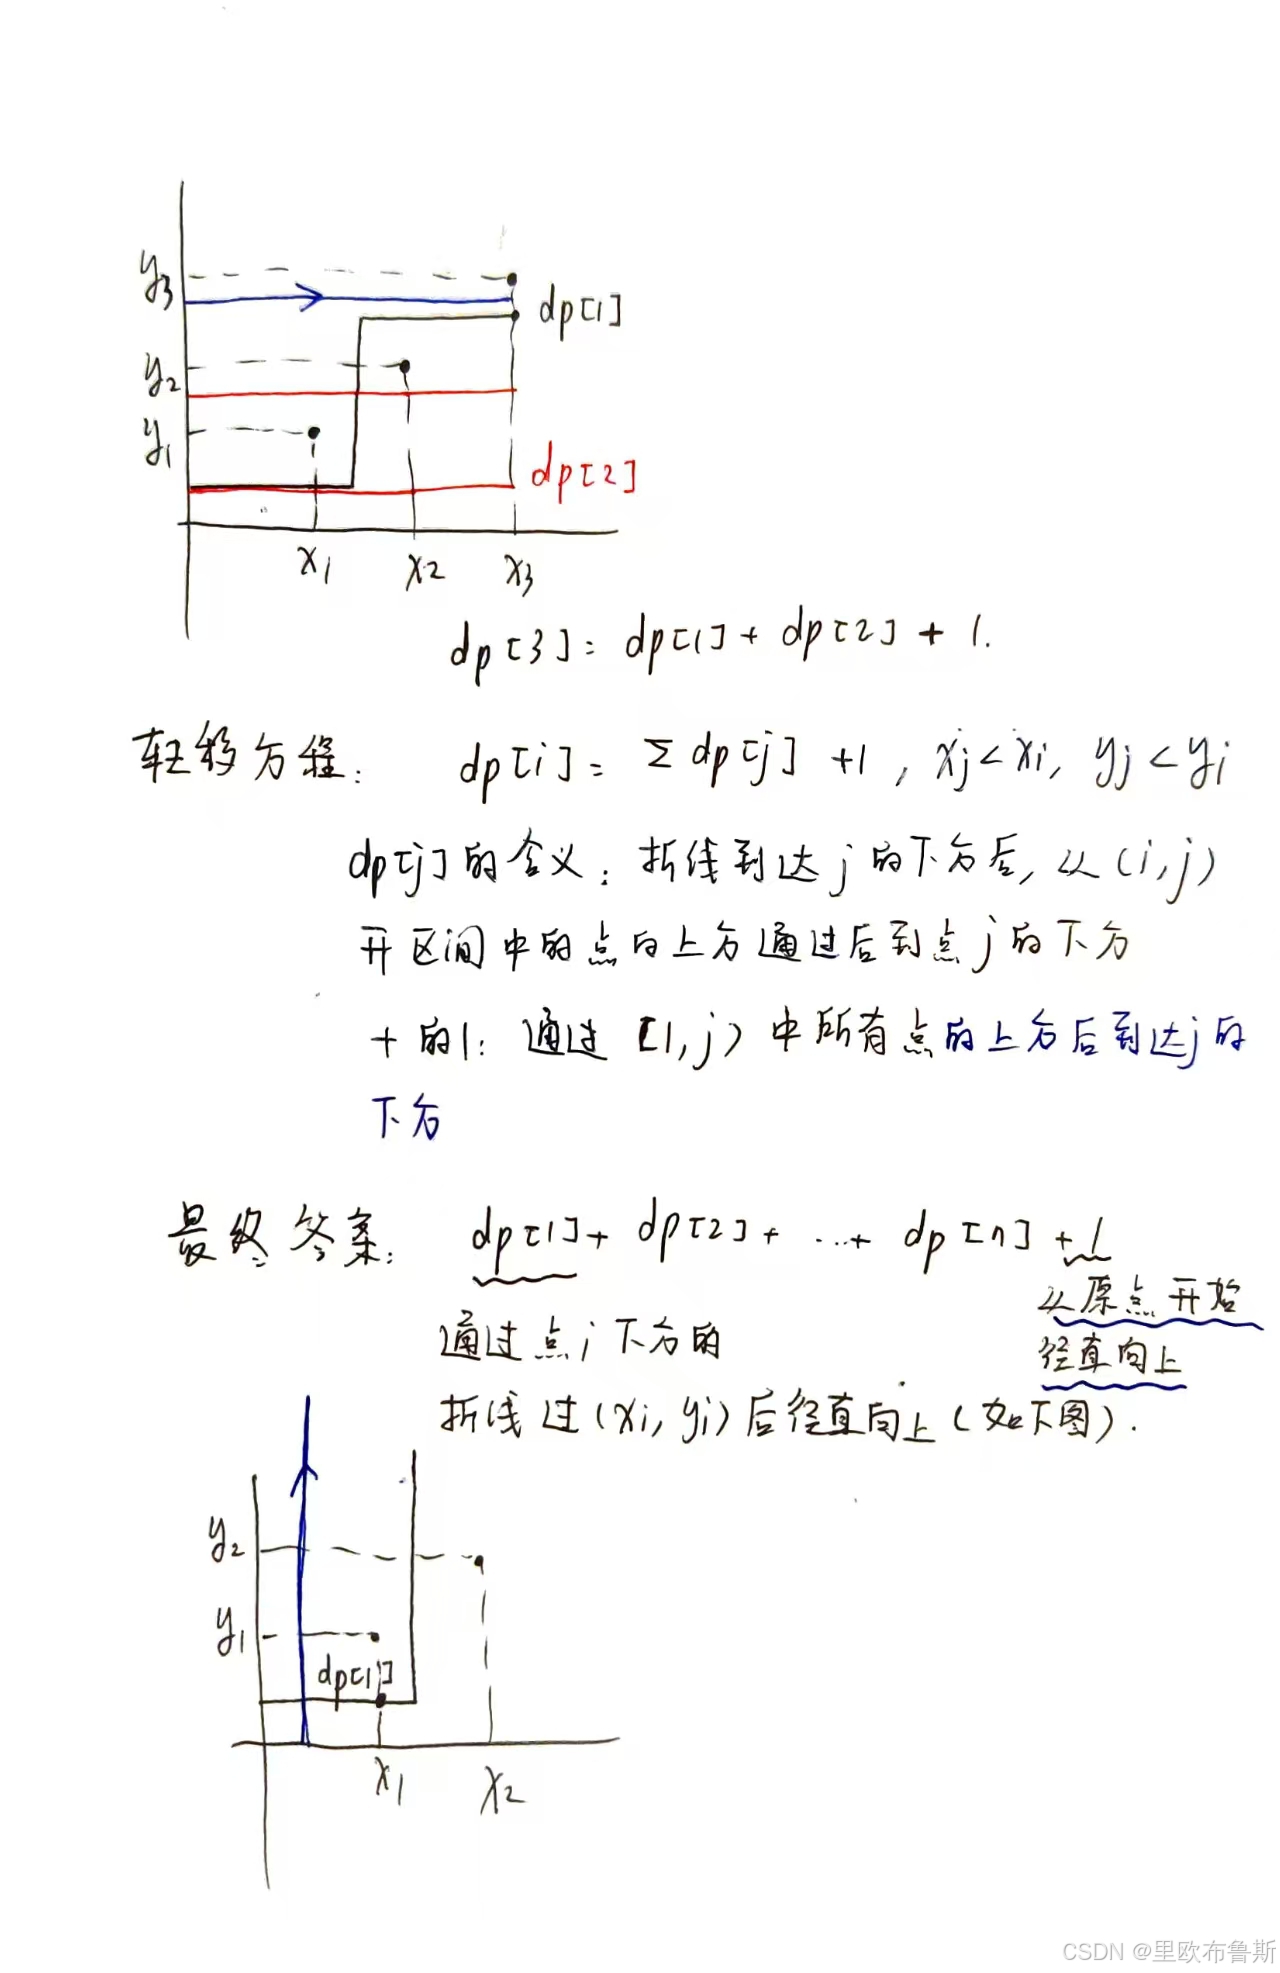 y3
dp[1]
y2
y1
dp[2]
x1 x2 x3
dp[3] = dp[1] + dp[2] + 1.
转移方程: dp[i] = Σ dp[j] +1 , xj < xi, yj < yi
dp[j]的含义: 折线到达j的下方后, 从(i,j)
开区间中的点的上方通过后到点j的下方
+的1: 通过[1,j)中所有点的上方后到达j的
下方
最终答案: dp[1] + dp[2] + ... + dp[n] + 1
从原点开始
通过点i下方的
径直向上
折线过(xi, yi)后径直向上(如下图).
y2
y1
dp[1]
x1 x2
CSDN @里欧布鲁斯